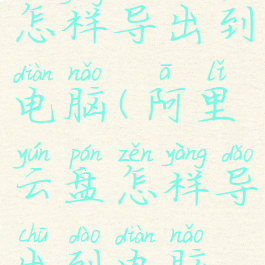 怎样导出到
diàn nǎo ā lǐ
电脑(阿里
yún pán zěn yàng dǎo
云盘怎样导
chū dào diàn nǎo
出到电脑